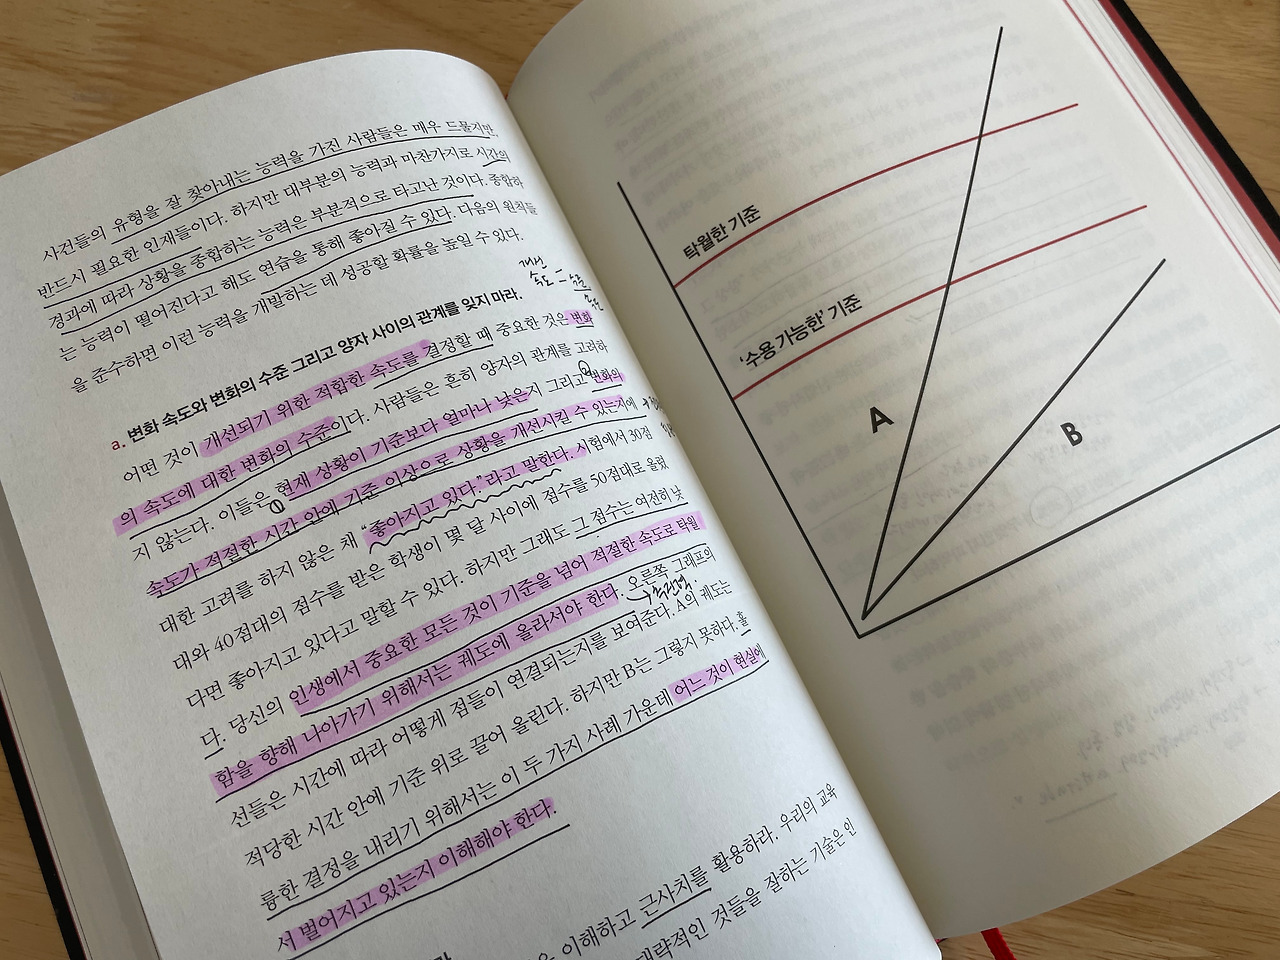 사건들의 유형을 잘 찾아내는 능력을 가진 사람들은 매우 드물지만,
반드시 필요한 인재들이다. 하지만 대부분의 능력과 마찬가지로 시간의
경과에 따라 상황을 종합하는 능력은 부분적으로 타고난 것이다. 종합하
는 능력이 떨어진다고 해도 연습을 통해 좋아질 수 있다. 다음의 원칙들
을 준수하면 이런 능력을 개발하는 데 성공할 확률을 높일 수 있다.
개선
속도 = 수준
a. 변화 속도와 변화의 수준 그리고 양자 사이의 관계를 잊지 마라.
어떤 것이 개선되기 위한 적합한 속도를 결정할 때 중요한 것은 변화
의 속도에 대한 변화의 수준이다. 사람들은 흔히 양자의 관계를 고려하
지 않는다. 이들은 현재 상황이 기준보다 얼마나 낮은지 그리고 변화의
①
②
속도가 적절한 시간 안에 기준 이상으로 상황을 개선시킬 수 있는지에
대한 고려를 하지 않은 채 “좋아지고 있다.”라고 말한다. 시험에서 30점
대와 40점대의 점수를 받은 학생이 몇 달 사이에 점수를 50점대로 올렸
다면 좋아지고 있다고 말할 수 있다. 하지만 그래도 그 점수는 여전히 낮
다. 당신의 인생에서 중요한 모든 것이 기준을 넘어 적절한 속도로 탁월
함을 향해 나아가기 위해서는 궤도에 올라서야 한다. 오른쪽 그래프의
선들은 시간에 따라 어떻게 점들이 연결되는지를 보여준다. A의 궤도는
적당한 시간 안에 기준 위로 끌어 올린다. 하지만 B는 그렇지 못하다. 훌
륭한 결정을 내리기 위해서는 이 두 가지 사례 가운데 어느 것이 현실에
서 벌어지고 있는지 이해해야 한다.
이해하고 근사치를 활용하라. 우리의 교육
대략적인 것들을 잘하는 기술은 인
탁월한 기준
‘수용 가능한’ 기준
A
B